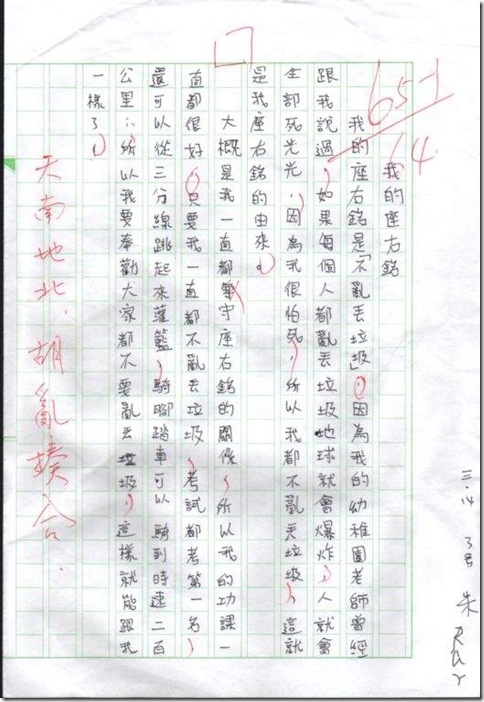 65-1
64
我的座右銘
我的座右銘是「不亂丟垃圾」。因為我的幼稚園老師曾經
跟我說過,如果每個人都亂丟垃圾地球就會爆炸,人就會
全部死光光,因為我很怕死,所以我都不亂丟垃圾,這就
是我座右銘的由來。
大概是我一直都遵守座右銘的關係,所以我的功課一
直都很好,只要我一直都不亂丟垃圾,考試都考第一名,
還可以從三分線跳起來灌籃,騎腳踏車可以騎到時速二百
公里…所以我要奉勸大家都不要亂丟垃圾,這樣就能跟我
一樣了。
天南地北.胡亂湊合.
三.14 3號 朱